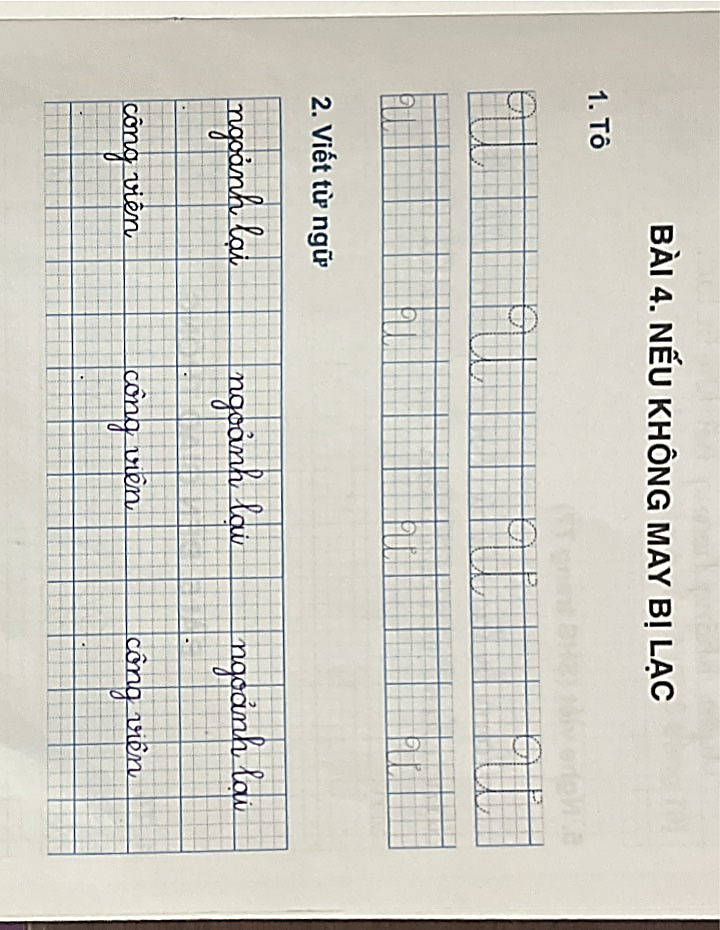 BÀI 4. NẾU KHÔNG MAY BỊ LẠC
1. Tô
U U Ư Ư
U U Ư Ư
2. Viết từ ngữ
ngoảnh lại ngoảnh lại ngoảnh lại
công viên công viên công viên